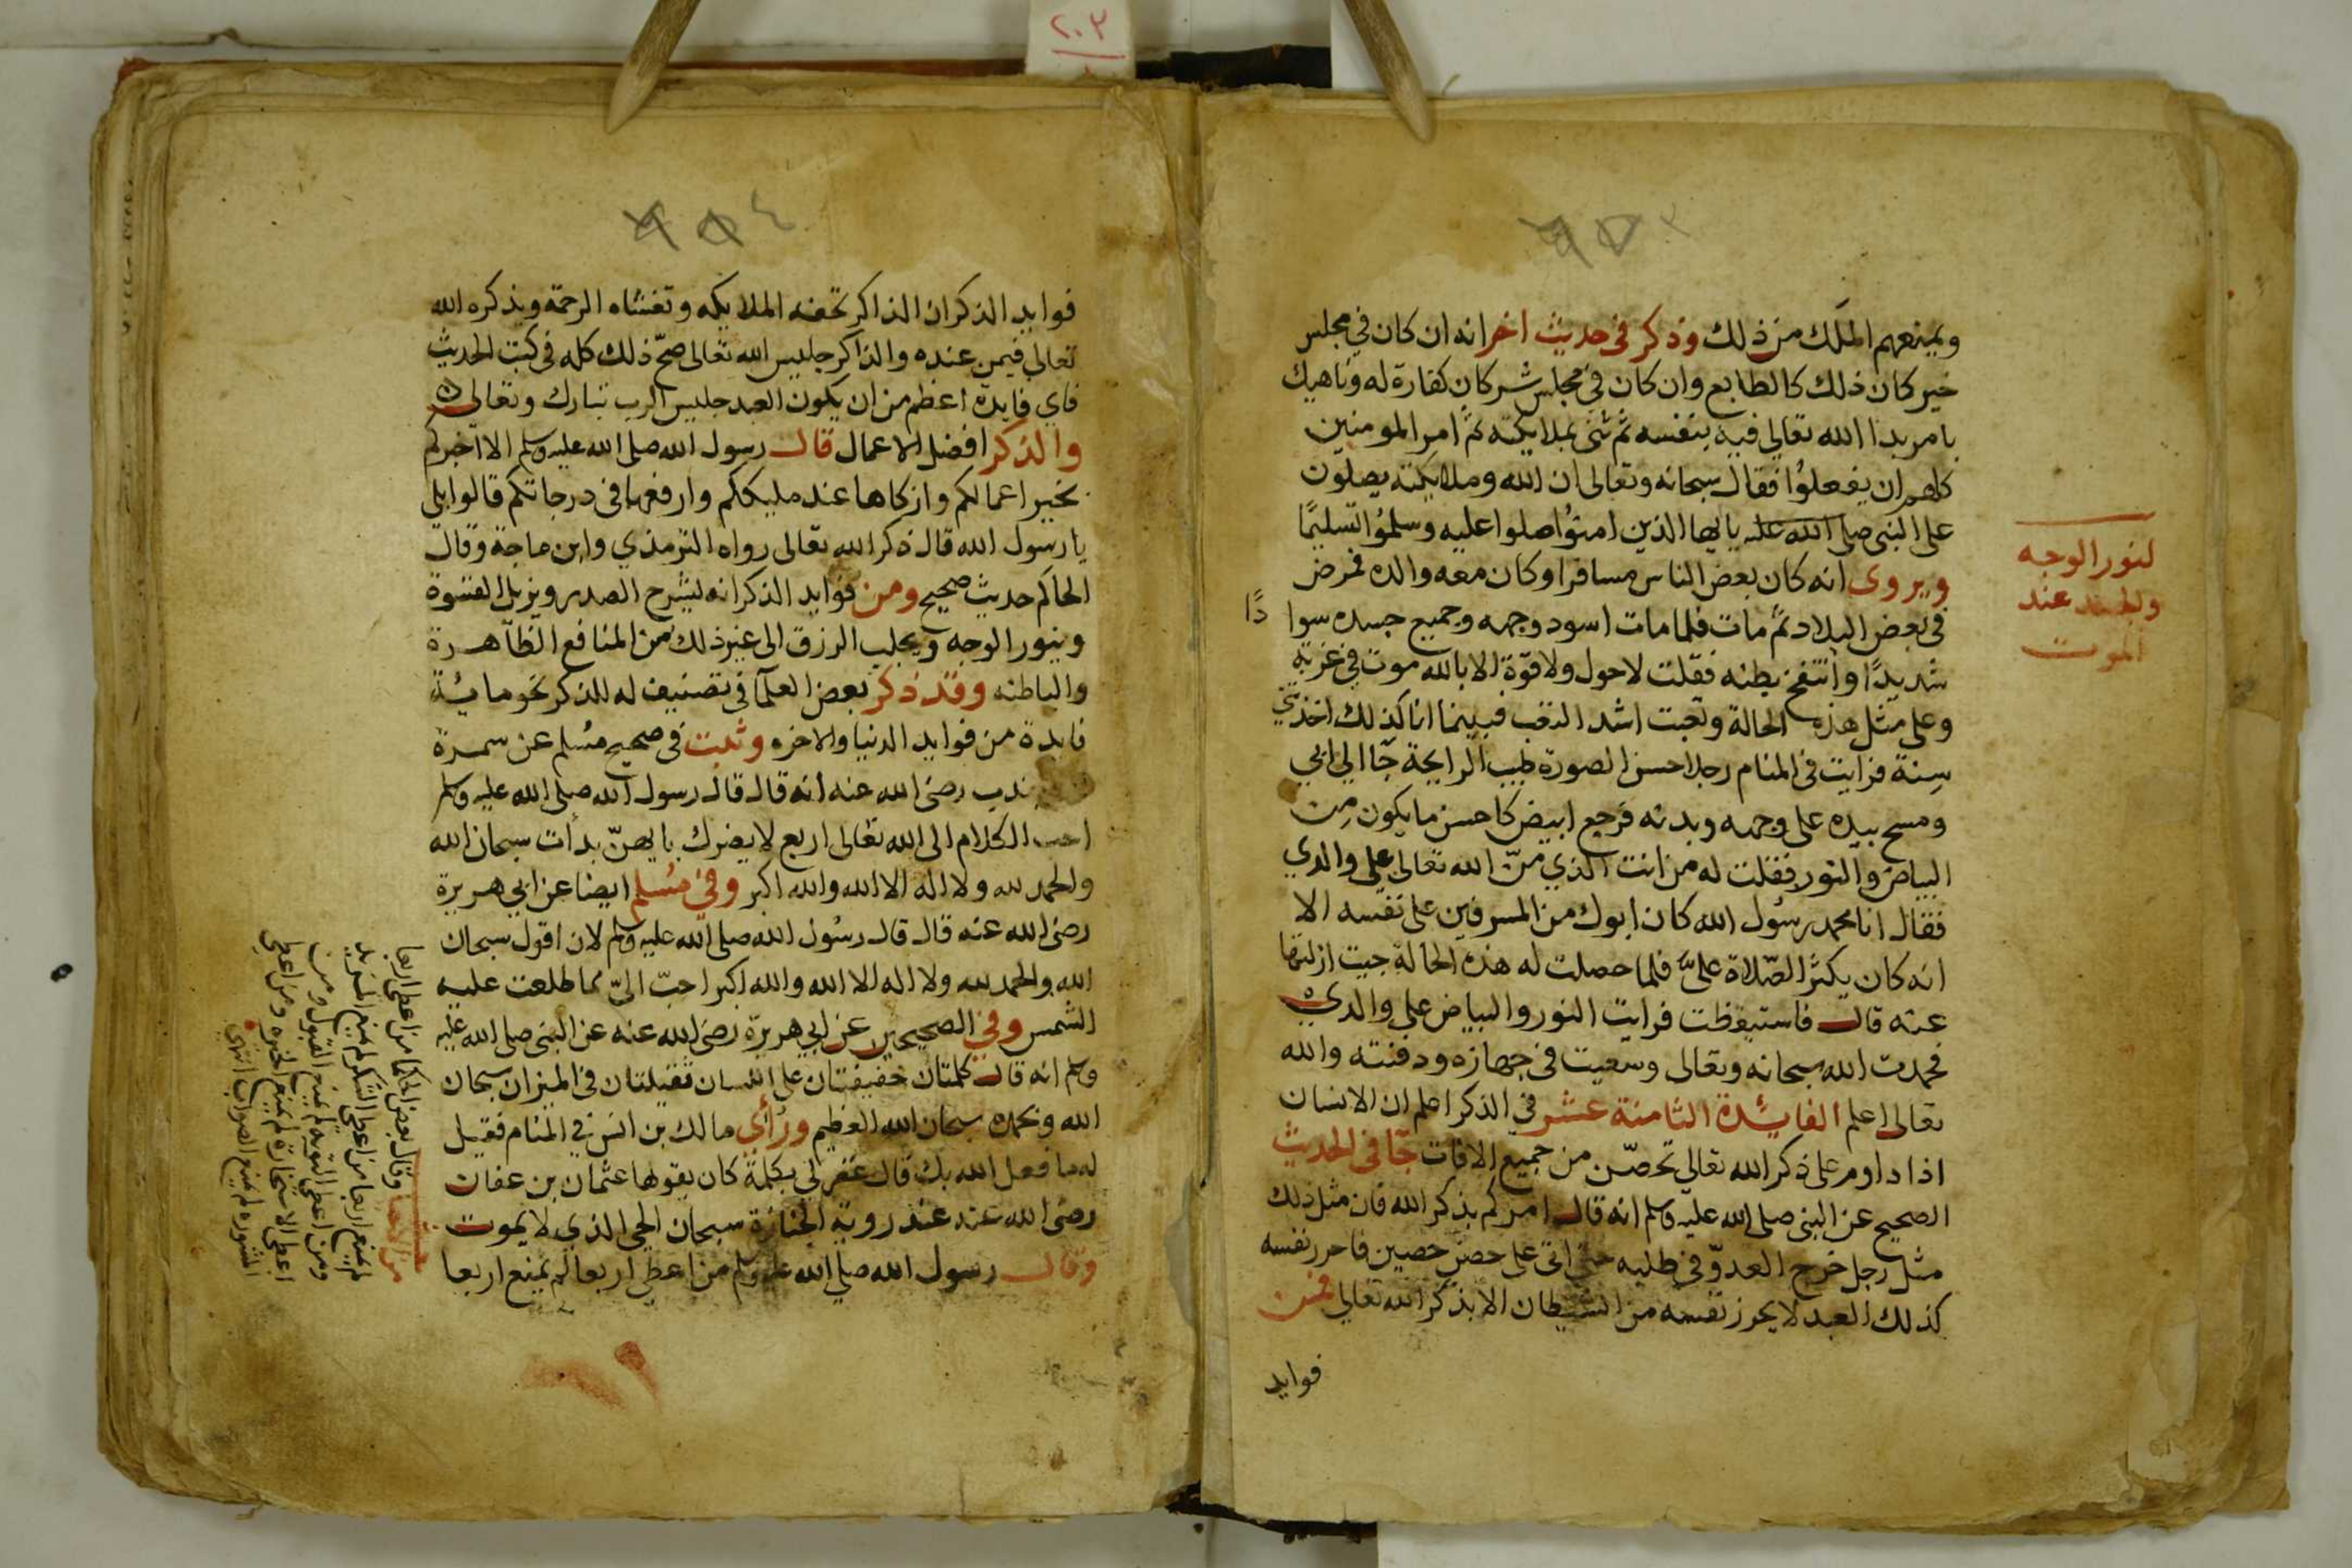 ٢٠٣
ويمنعهم الملك من ذلك وذكر في حديث اخر انه ان كان في مجلس
خير كان ذلك كالطابع وان كان في مجلس شر كان كفارة له وناهيك
بامر بدا الله تعالي فيه بنفسه ثم ثنى بملايكته ثم امر المومنين
كلهم ان يفعلوا فقال سبحانه وتعالى ان الله وملايكته يصلون
على النبي صلى الله عليه يايها الذين امنوا صلوا عليه وسلموا تسليما
ويروى انه كان بعض الناس مسافرا وكان معه والده فمرض
في بعض البلاد ثم مات فلما مات اسود وجهه وجميع جسده سوا
دًا
شديدًا وانتفخ بطنه فقلت لاحول ولاقوة الا بالله موت في غربة
وعلى مثل هذه الحالة وتعبت اشد التعب فبينما انا كذلك اخذتني
سِنة فرايت في المنام رجلا حسن الصورة طيب الرايحة جآ الي ابي
ومسح بيده على وجهه وبدنه فرجع ابيض كاحسن مايكون من
البياض والنور فقلت له من انت الذي منّ الله تعالى على والدي
فقال انا محمد رسول الله كان ابوك من المسرفين على نفسه الا
انه كان يكثر الصلاة علىّ فلما حصلت له هذه الحالة جيت ازلتها
عنه قال فاستيقظت فرايت النور والبياض على والدي
فحمدت الله سبحانه وتعالى وسعيت في جهازه ودفنته والله
تعالى اعلم الفائدة الثامنة عشر في الذكر اعلم ان الانسان
اذا داوم على ذكر الله تعالي تحصّن من جميع الافات جآ في الحديث
الصحيح عن النبي صلى الله عليه وسلم انه قال امركم بذكر الله فان مثل ذلك
مثل رجل خرج العدوّ في طلبه حتى اتى على حصن حصين فاحرز نفسه
كذلك العبد لا يحرز نفسه من الشيطان الا بذكر الله تعالي فمن
فوايد
لنور الوجه
عند
الموت
فوايد الذكر ان الذاكر تحفه الملايكه وتغشاه الرحمة ويذكره الله
تعالي فيمن عنده والذاكر جليس الله تعالى صحّ ذلك كله في كتب الحديث
فاي فايدة اعظم من ان يكون العبد جليس الرب تبارك وتعالى
والذكر افضل الاعمال قال رسول الله صلى الله عليه وسلم الا اخبركم
بخير اعمالكم وازكاها عند مليككم وارفعها في درجاتكم قالوا بلى
يا رسول الله قال ذكر الله تعالى رواه الترمذي وابن ماجة وقال
الحاكم حديث صحيح ومن فوايد الذكر انه ليشرح الصدر ويزيل القسوة
وينور الوجه ويجلب الرزق الى غير ذلك من المنافع الظاهرة
والباطنه وقد ذكر بعض العلمآ في تصنيف له للذكر نحو مائة
فايدة من فوايد الدنيا والاخره وثبت في صحيح مسلم عن سمرة
رضي الله عنه انه قال قال رسول الله صلى الله عليه وسلم
احب الكلام الى الله تعالى اربع لا يضرك بايهنّ بدات سبحان الله
والحمد لله ولا اله الا الله والله اكبر وفي مسلم ايضا عن ابي هريرة
رضي الله عنه قال قال رسول الله صلى الله عليه وسلم لان اقول سبحان
الله والحمد لله ولا اله الا الله والله اكبر احبّ اليّ مما طلعت عليه
الشمس وفي الصحيحين عن ابي هريرة رضي الله عنه عن النبي صلى الله عليه
وسلم انه قال كلمتان خفيفتان على اللسان ثقيلتان في الميزان سبحان
الله وبحمده سبحان الله العظيم ورأي مالك بن انس في المنام فقيل
له ما فعل الله بك قال غفر لي بكلمة كان يقولها عثمان بن عفان
رضي الله عنه عند روية الجنازة سبحان الحي الذي لا يموت
وقال رسول الله صلى الله عليه وسلم من اعطي اربعا لم يمنع اربعا
وقال بعض الحكما من اعطى اربعا
لم يمنع اربعا من اعطى الشكر لم يمنع المزيد
ومن اعطى التوبة لم يمنع القبول ومن
اعطى الاستخارة لم يمنع الخيره ومن اعطى
المشوره لم يمنع الصواب انتهى